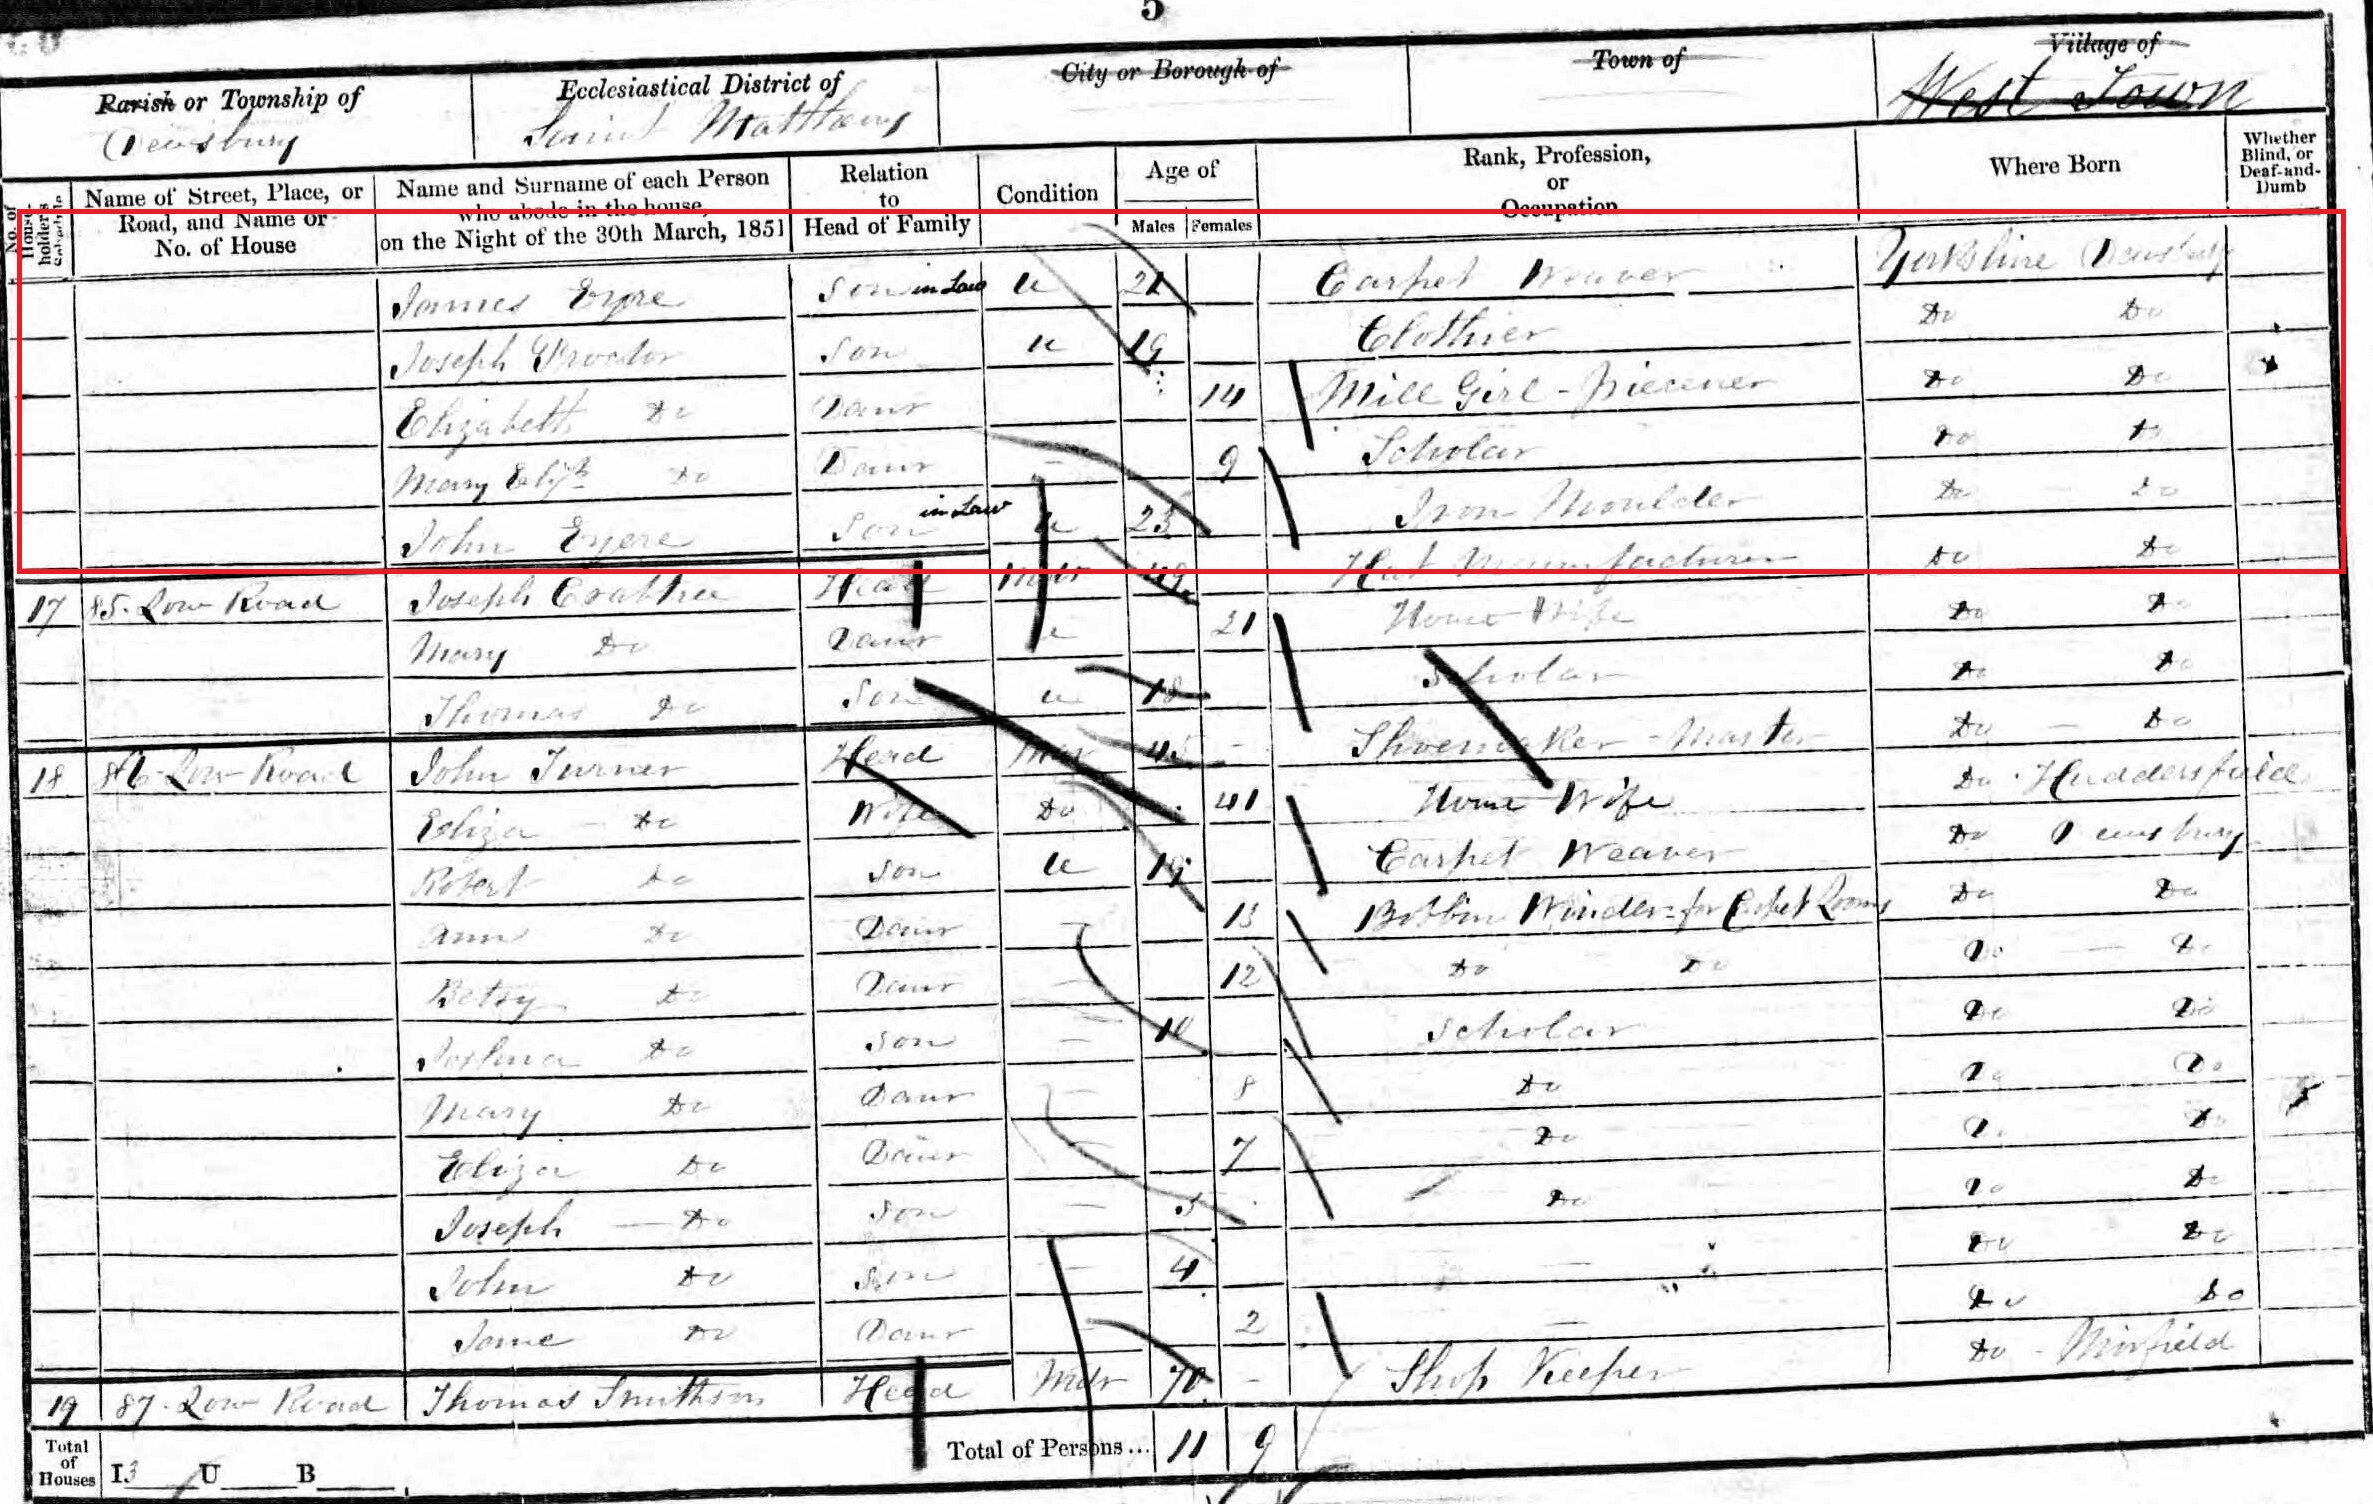 5
Parish or Township of Ecclesiastical District of City or Borough of Town of Village of
Dewsbury Saint Matthews West Town
No. of House-holder's Schedule Name of Street, Place, or Road, and Name or No. of House Name and Surname of each Person who abode in the house, on the Night of the 30th March, 1851 Relation to Head of Family Condition Age of Males Females Rank, Profession, or Occupation Where Born Whether Blind, or Deaf-and-Dumb
James Eyre Son in Law U 21 Carpet Weaver Yorkshire Dewsbury
Joseph Proctor Son U 19 Clothier Do Do
Elizabeth Do Daur 14 Mill Girl - Piecener Do Do
Mary Elizth Do Daur - 9 Scholar Do Do
John Eyere Son in Law U 23 Iron Moulder Do Do
17 85 Low Road Joseph Crabtree Head Mdr 49 Hat Manufacturer Do Do
Mary Do Daur U 21 House Wife Do Do
Thomas Do Son U 18 Scholar Do Do
18 86 Low Road John Turner Head Mar 45 - Shoemaker - Master Do - Do
Eliza Do Wife Do 41 House Wife Do Huddersfield
Robert Do Son U 19 Carpet Weaver Do Dewsbury
Ann Do Daur - 13 Bobbin Winder for Carpet Looms Do Do
Betsy Do Daur - 12 Do Do Do - Do
Joshua Do Son - 10 Scholar Do Do
Mary Do Daur - 8 Do Do Do
Eliza Do Daur - 7 Do Do Do
Joseph - Do Son - 5 Do Do Do
John Do Son - 4 - Do Do
Jane Do Daur - 2 - Do Do
19 87 Low Road Thomas Smithson Head Mdr 70 - Shop Keeper Do - Mirfield
Total of Houses I 3 U B Total of Persons... 11 9